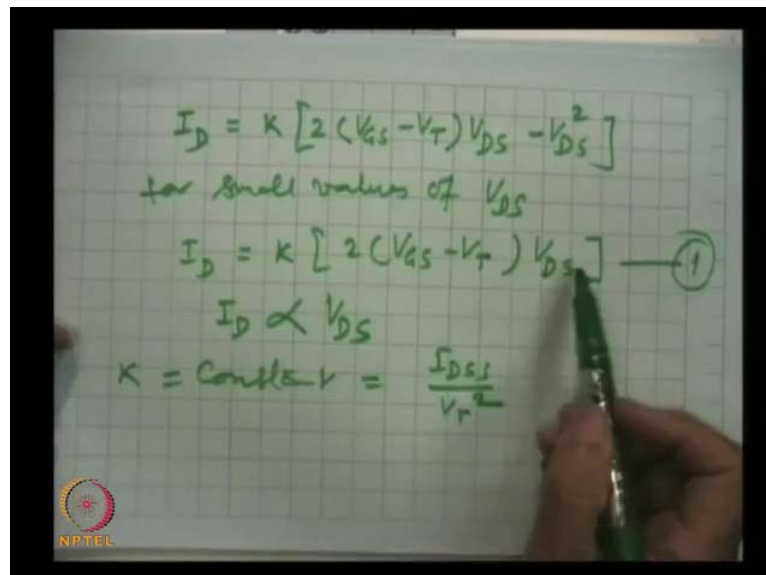 I_D = K [ 2 (V_GS - V_T) V_DS - V_DS^2 ]
for small values of V_DS
I_D = K [ 2 (V_GS - V_T) V_DS ] — 1
I_D ∝ V_DS
K = Constant = I_DSS / V_T^2
NPTEL